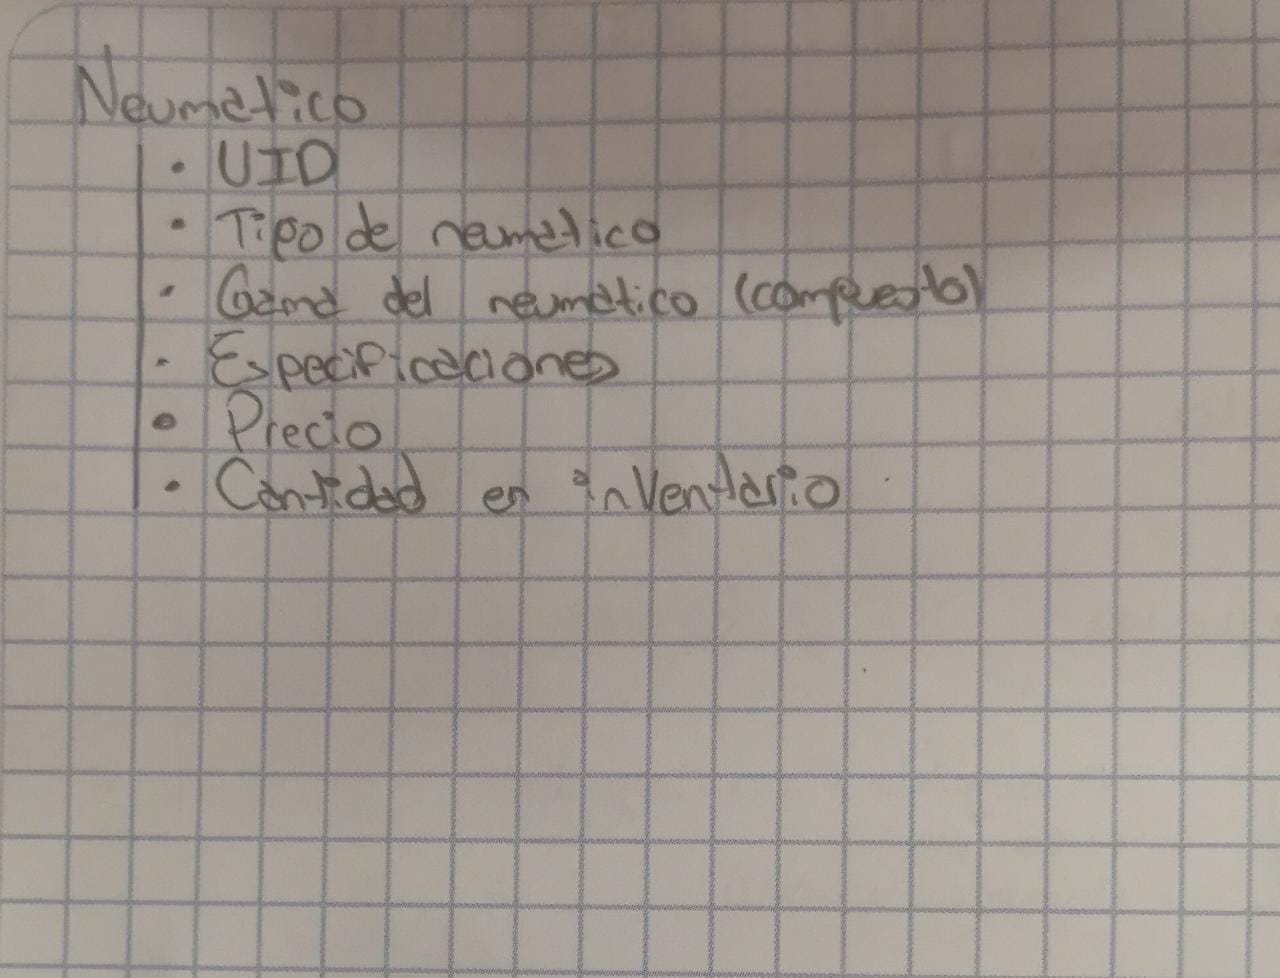 Neumático
• UID
• Tipo de neumático
• Gama del neumático (compuesto)
• Especificaciones
• Precio
• Cantidad en inventario